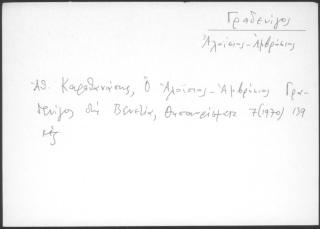 Γραδενίγος
Ἀλοίσιος-Ἀμβρόσιος
Ἀθ. Καραθανάσης, Ὁ Ἀλοίσιος-Ἀμβρόσιος Γρα-
δενίγος στη Βενετία, Θησαυρίσματα 7 (1970) 139